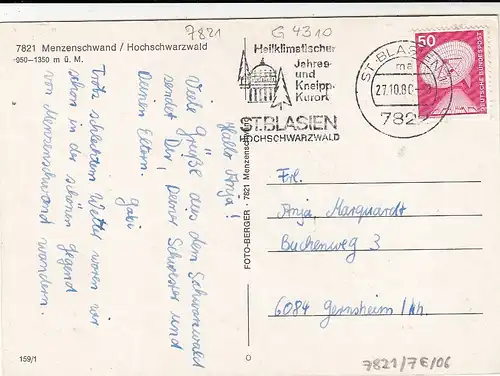 7821
G 4310
7821 Menzenschwand / Hochschwarzwald
950–1350 m ü. M.
Heilklimatischer
Jahres-
und
Kneipp-
Kurort
ST.BLASIEN
HOCHSCHWARZWALD
ST. BLASIEN
ma
27.10.80
782
50
DEUTSCHE BUNDESPOST
Hallo Anja!
Viele Grüße aus dem Schwarzwald
sendet Dir, Deiner Schwester und
Deinen Eltern
Gabi
Trotz schlechtem Wetter waren wir
schon in der schönen Gegend
von Menzenschwand wandern.
FOTO-BERGER · 7821 Menzenschwand
Frl.
Anja Marquardt
Buchenweg 3
6084 Gernsheim/Rh.
159/1
7821/7E/06